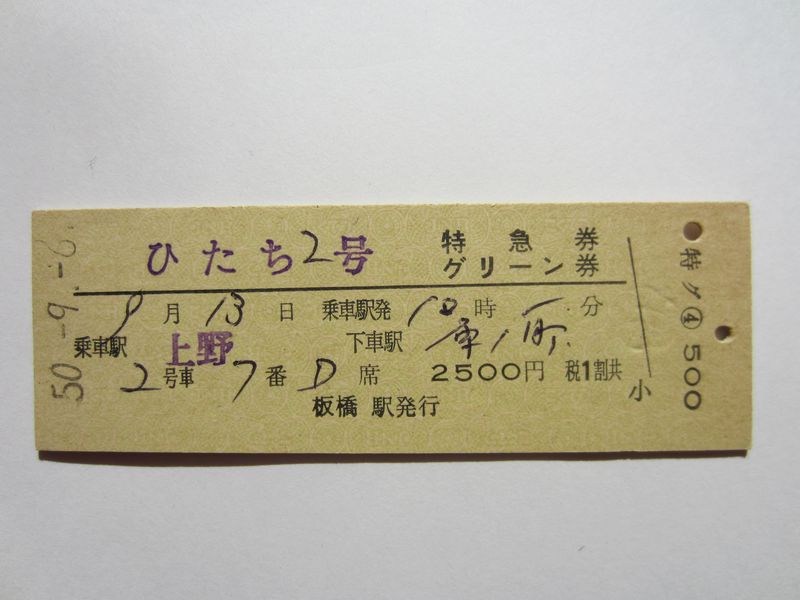 50-9.-6.
ひたち2号
特急券
グリーン券
9月13日 乗車駅発10時 分
乗車駅 上野 下車駅
2号車 7番 D席 2500円 税1割共
板橋 駅発行
小
特グ④500